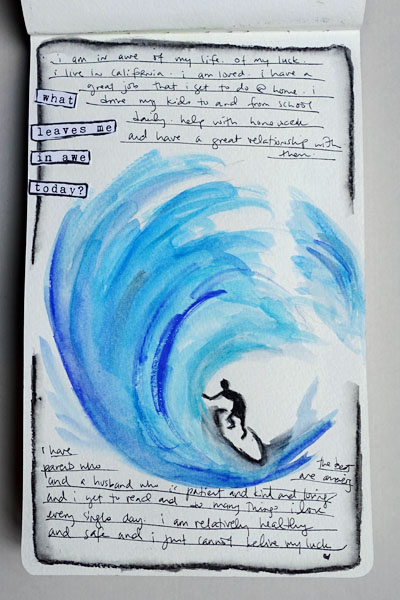 i am in awe of my life. of my luck.
i live in california. i am loved. i have a
great job that i get to do @ home. i
drive my kids to and from school
daily. help with homework
and have a great relationship with
them.
what
leaves me
in awe
today?
i have
parents who
are
the best
and a husband who is patient and kind and loving
and i get to read and do many things i love
every single day. i am relatively healthy
and safe and i just cannot belive my luck